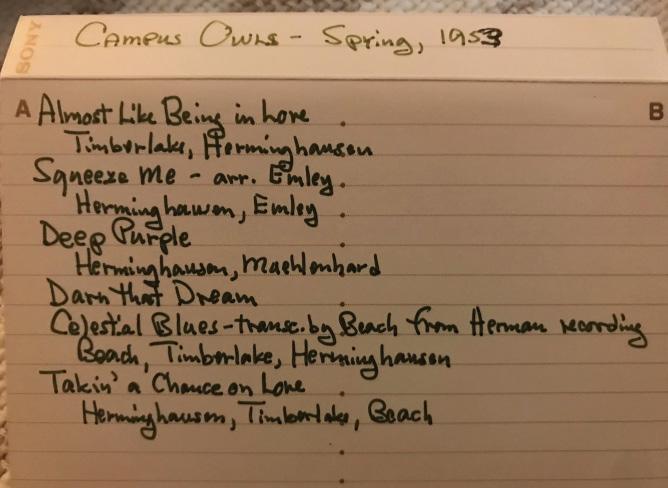 SONY
Campus Owls - Spring, 1953
A
B
Almost Like Being in Love
Timberlake, Herminghausen
Squeeze Me - arr. Emley
Herminghausen, Emley
Deep Purple
Herminghausen, Muehlenhard
Darn that Dream
Celestial Blues - transc. by Beach from Herman recording
Beach, Timberlake, Herminghausen
Takin' a Chance on Love
Herminghausen, Timberlake, Beach